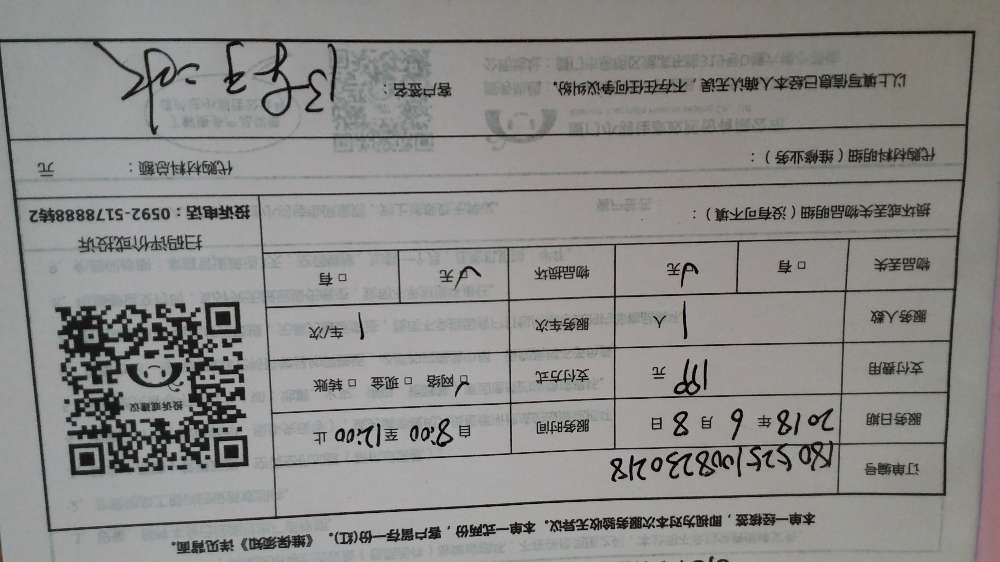 本单一经核签，即视为对本次服务验收无异议。本单一式两份，客户留存一份(红)。《维保须知》详见背面。
订单编号 1805251008230218
服务日期 2018 年 6 月 8 日 服务时间 自 8:00 至 12:00 止
支付费用 199 元 支付方式 ☑ 网络 □ 现金 □ 转账
服务人数 1 人 服务车次 1 车/次
物品丢失 □ 有 ☑ 无 物品损坏 ☑ 无 □ 有
投诉或建议
扫码评价或投诉
投诉电话：0592-5178888转2
损坏或丢失物品明细（没有可不填）：
代购材料明细（维修业务）： 代购材料总额： 元
以上填写信息已经本人确认无误，不存在任何争议纠纷。 客户签名：